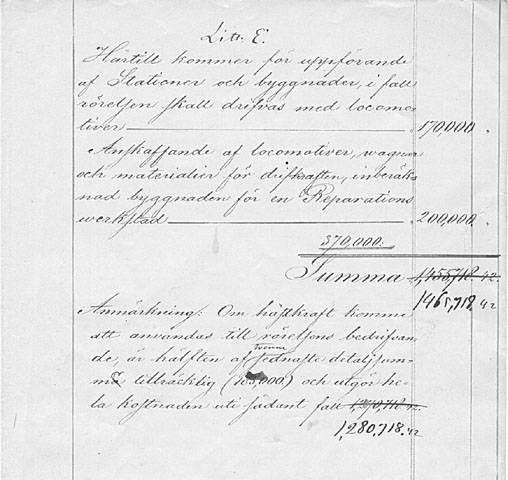 Litt. E.
Härtill kommer för uppförande
af Stationer och byggnader, i fall
rörelsen skall drifvas med locomo-
tiver 170,000.
Anskaffande af locomotiver, wagnar
och materialier för driftkraften, inberäk-
nad byggnaden för en Reparations
werkstad 200,000.
370,000.
Summa 1,455,718. 42.
1,465,718. 42
Anmärkning: Om hästkraft komme
att användas till rörelsens bedrifvan-
de, är hälften af tvenne sednaste detaljsum-
ma tillräcklig (185,000.) och utgör he-
la kostnaden uti sådant fall 1,270,718 42.
1,280,718. 42